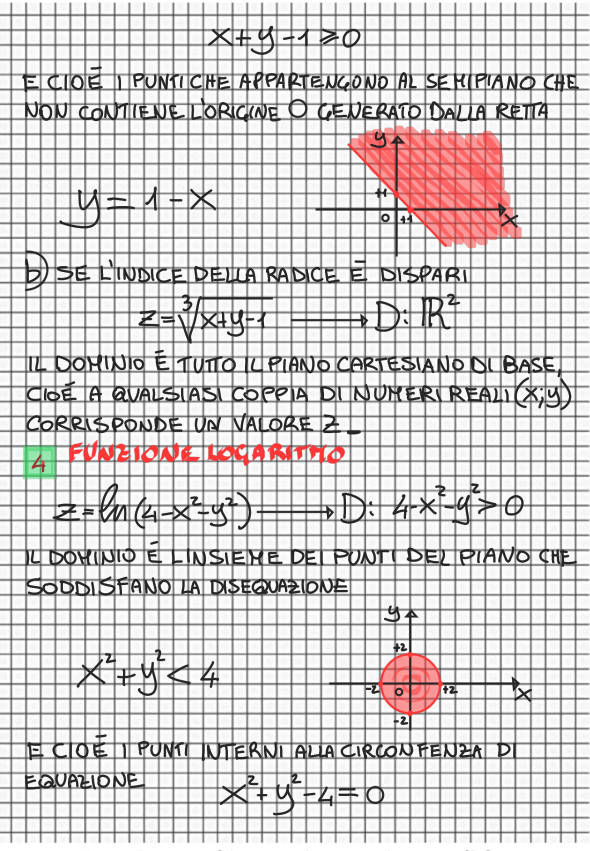 x+y-1⩾0
E CIOÈ I PUNTI CHE APPARTENGONO AL SEMIPIANO CHE
NON CONTIENE L'ORIGINE O GENERATO DALLA RETTA
y
y=1-x
+1
0 +1 x
b) SE L'INDICE DELLA RADICE È DISPARI
z=∛(x+y-1) → D: ℝ²
IL DOMINIO È TUTTO IL PIANO CARTESIANO DI BASE,
CIOÈ A QUALSIASI COPPIA DI NUMERI REALI (x;y)
CORRISPONDE UN VALORE Z_
4 FUNZIONE LOGARITMO
z=ln(4-x²-y²) → D: 4-x²-y²>0
IL DOMINIO È L'INSIEME DEI PUNTI DEL PIANO CHE
SODDISFANO LA DISEQUAZIONE
y
+2
x²+y²<4
-2 0 +2 x
-2
E CIOÈ I PUNTI INTERNI ALLA CIRCONFENZA DI
EQUAZIONE x²+y²-4=0